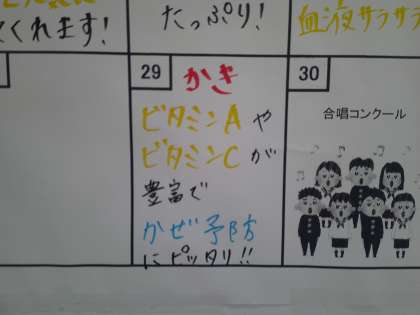 てくれます!
たっぷり!
血液サラサラ
29
かき
ビタミンAや
ビタミンCが
豊富で
かぜ予防
にピッタリ!!
30
合唱コンクール